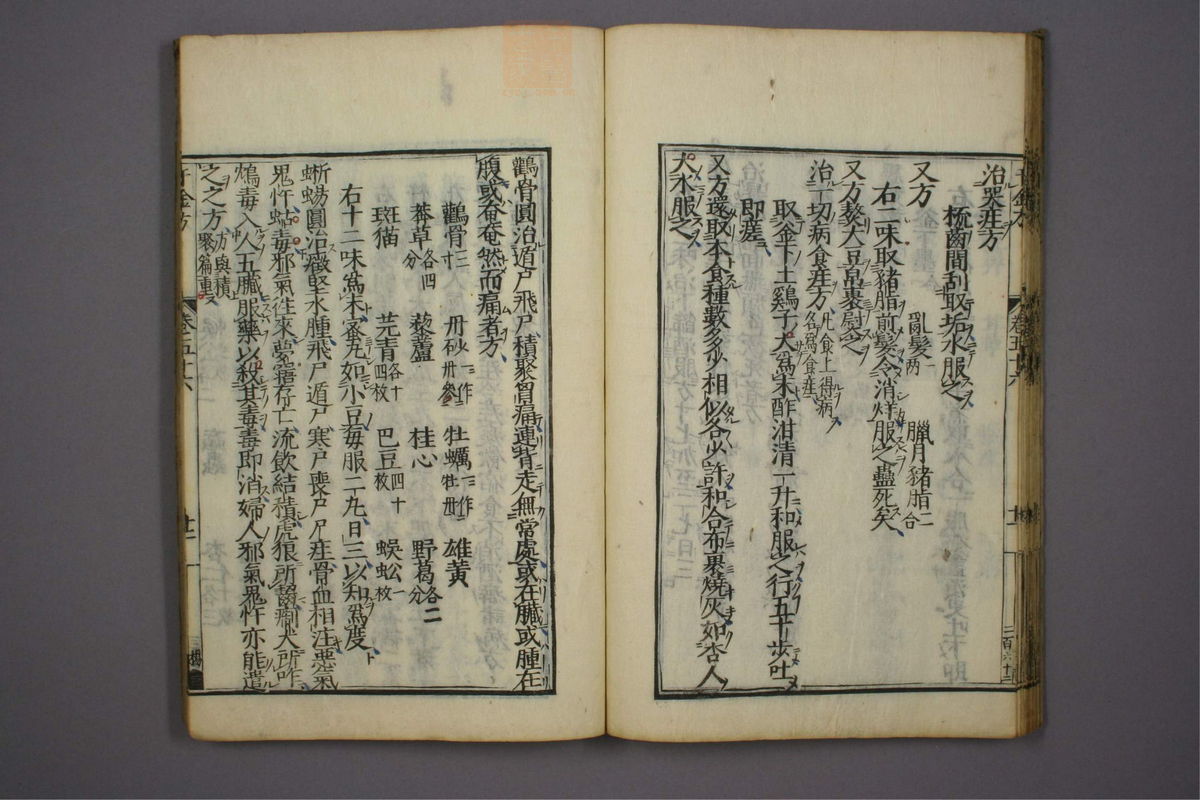 治哭疰方
梳齒間刮取垢水服之
又方
亂髮一兩
臘月猪脂二合
右二味取猪脂煎髮令消烊服之蟲死矣
又方熬大豆帛裹熨之
治一切病食疰方凡食上得病名爲食疰
取釜下土雞子大爲末酢泔清一升和服之行五十步吐
即差
又方還取本食種數多少相似各少許和合布裹燒灰如杏人
大水服之
鸛骨圓治遁尸飛尸積聚胷痛連背走無常處或在臟或腫在
腹或奄奄然而痛者方
鸛骨三寸 丹砂一作丹參 牡蠣一作牡丹 雄黃
莽草各四分 藜蘆 桂心 野葛各二分
斑猫 芫青各十四枚 巴豆四十枚 蜈蚣一枚
右十二味爲末蜜丸如小豆每服二丸日三以知爲度
蜥蜴圓治癥堅水腫飛尸遁尸寒尸喪尸尸疰骨血相注惡氣
鬼忤蛊毒邪氣往來夢寤存亡流飲結積虎狼所齧猘犬所咋
鴆毒入人五臟服藥以殺其毒毒即消婦人邪氣鬼忤亦能遣
之之方方與積聚篇重
千金方
卷五十六